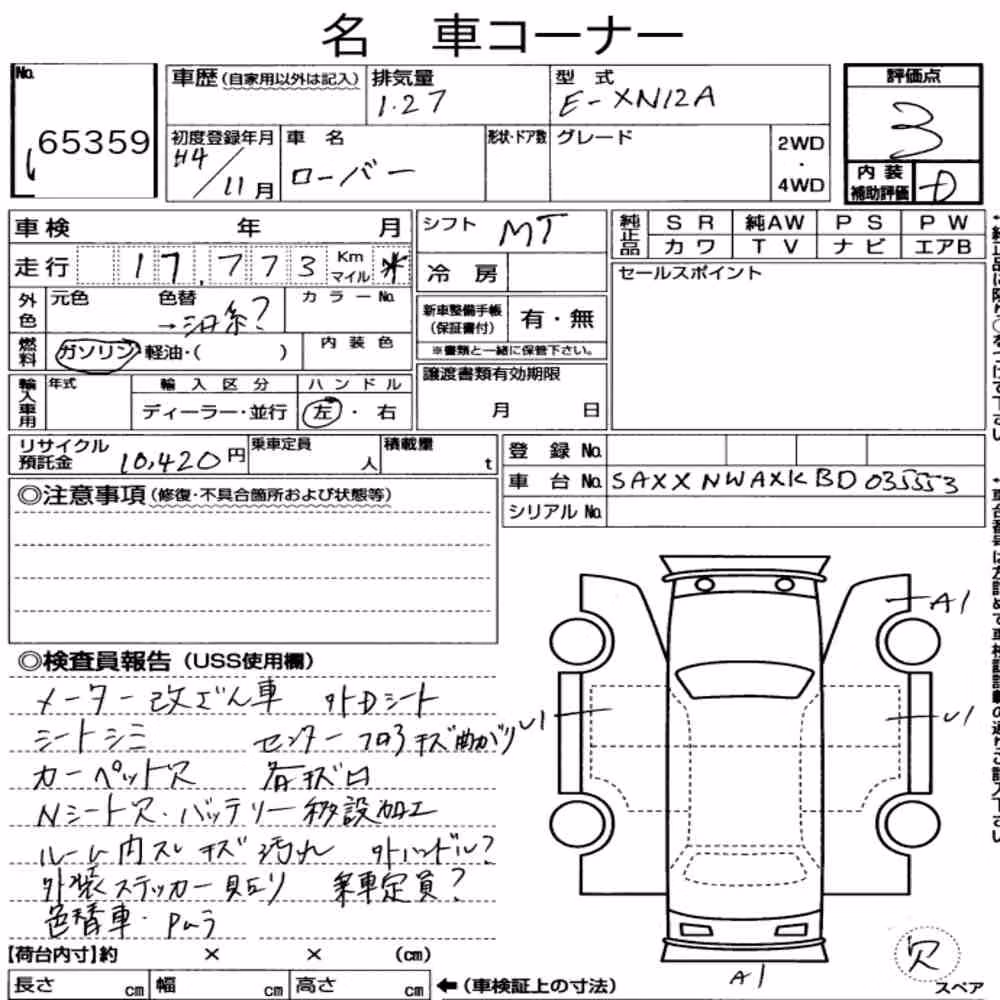 名 車コーナー
No.
65359
車歴(自家用以外は記入)
排気量
1.27
型 式
E-XN12A
評価点
3
初度登録年月
H4/11月
車 名
ローバー
形状・ドア数
グレード
2WD
・
4WD
内 装
補助評価
D
車検 年 月
走行 17,773 Km マイル *
シフト MT
冷 房
純正品
S R 純AW P S P W
カワ T V ナビ エアB
セールスポイント
外色
元色
色替
→シロ系?
カラーNo.
新車整備手帳
(保証書付)
有・無
※書類と一緒に保管下さい。
燃料
ガソリン・軽油・( )
内装色
輸入車用
年式
輸入区分
ハンドル
ディーラー・並行
左・右
譲渡書類有効期限
月 日
リサイクル
預託金
10,420円
乗車定員
人
積載量
t
登 録 No.
車 台 No. SAXXNWAXKBD035553
シリアル No.
◎注意事項(修復・不具合箇所および状態等)
◎検査員報告(USS使用欄)
メーター改ざん車 外Dシート
シートシミ センターフロアキズ曲がり
カーペット穴 各キズ凹
Nシート穴・バッテリー移設加工
ルーム内スレキズ汚れ 外ハンドル?
外装ステッカー貼り 乗車定員?
色替車・Pムラ
A1
U1
U1
A1
【荷台内寸】約 × × (cm)
長さ cm 幅 cm 高さ cm
←(車検証上の寸法)
欠
スペア